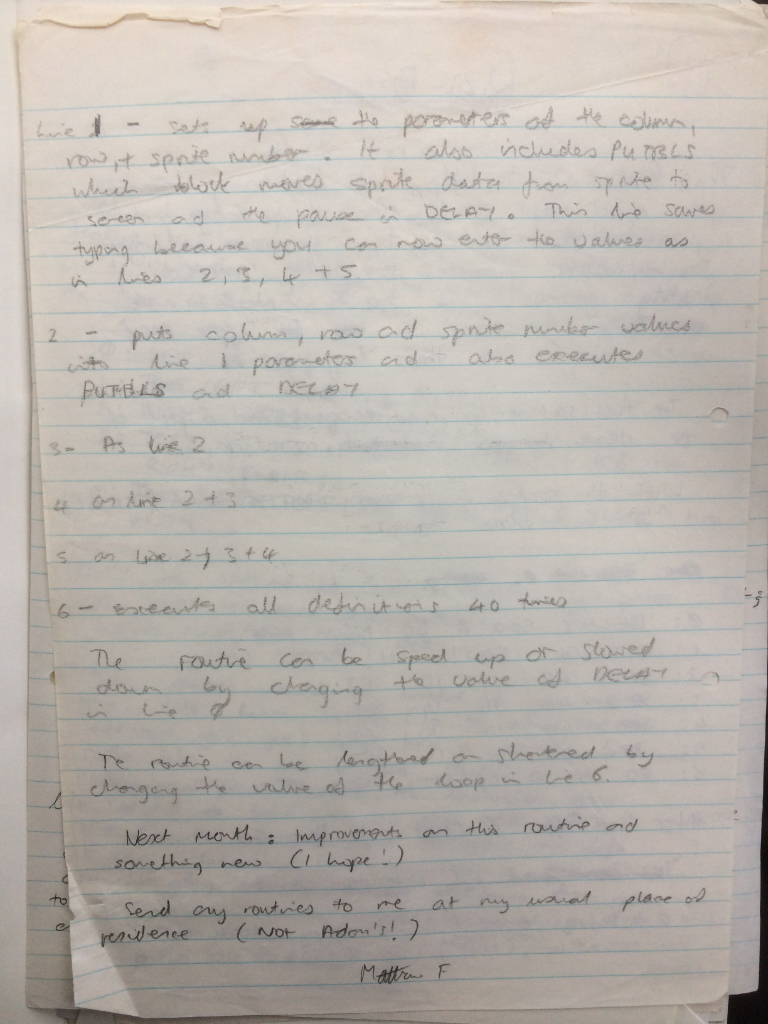 Line 1 - sets up some the parameters of the column,
row, + sprite number. It also includes PUTBLS
which block moves sprite data from sprite to
screen ad the pause in DELAY. This line saves
typing because you can now enter the values as
in lines 2, 3, 4 + 5
2 - puts column, row ad sprite number values
into line 1 parameters ad also executes
PUTBLS ad DELAY
3 - As line 2
4 as line 2 + 3
5 as line 2, 3 + 4
6 - executes all definitions 40 times
The routine can be sped up or slowed
down by changing the value of DELAY
in line
The routine can be lengthened or shortened by
changing the value of the loop in line 6.
Next Month : Improvements on this routine ad
something new (I hope!)
Send any routines to me at my usual place of
residence (Not Adam's!)
Matthew F